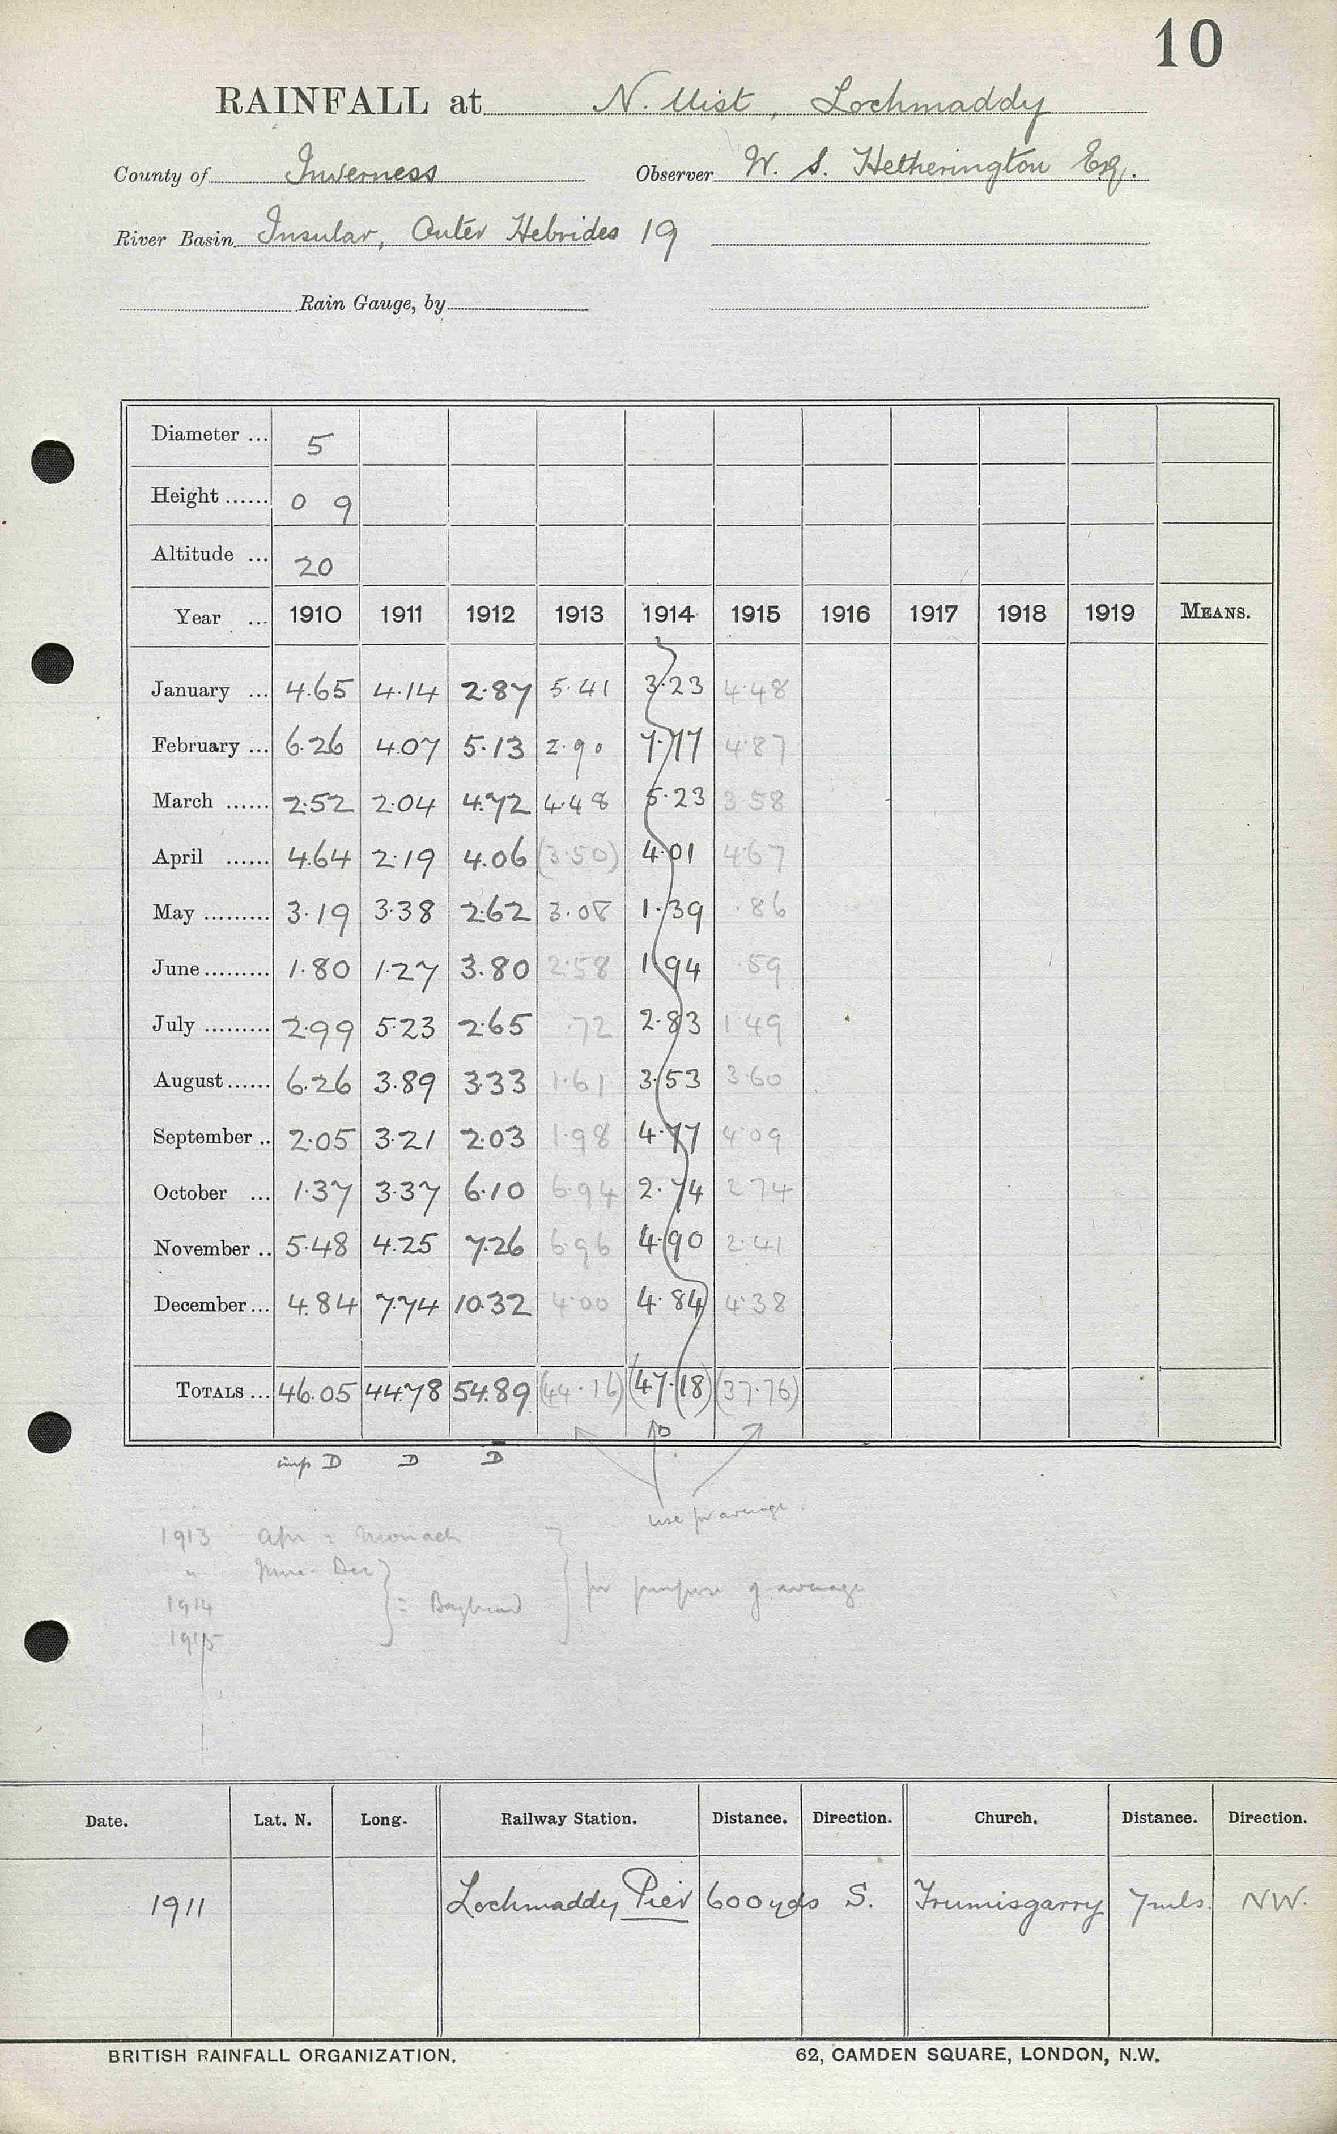 10
RAINFALL at N. Uist, Lochmaddy
County of Inverness Observer W. S. Hetherington Esq.
River Basin Insular, Outer Hebrides 19
Rain Gauge, by
Diameter ... 5
Height ...... 0 9
Altitude ... 20
Year ... 1910 1911 1912 1913 1914 1915 1916 1917 1918 1919 MEANS.
January ... 4.65 4.14 2.87 5.41 3.23 4.48
February ... 6.26 4.07 5.13 2.90 7.77 4.87
March ...... 2.52 2.04 4.72 4.48 5.23 3.58
April ...... 4.64 2.19 4.06 (3.50) 4.01 4.67
May ......... 3.19 3.38 2.62 3.08 1.39 .86
June ......... 1.80 1.27 3.80 2.58 1.94 .59
July ......... 2.99 5.23 2.65 .72 2.83 1.49
August ...... 6.26 3.89 3.33 1.61 3.53 3.60
September .. 2.05 3.21 2.03 1.98 4.77 4.09
October ... 1.37 3.37 6.10 6.94 2.74 2.74
November .. 5.48 4.25 7.26 6.96 4.90 2.41
December ... 4.84 7.74 10.32 4.00 4.84 4.38
TOTALS ... 46.05 44.78 54.89 (44.16) (47.18) (37.76)
D D D
use for average.
1913 Apr = Monach
" June - Dec
1914 = for purpose of average
1915
Date. Lat. N. Long. Railway Station. Distance. Direction. Church. Distance. Direction.
1911 Lochmaddy Pier 600yds S. Trumisgarry 7mls. NW.
BRITISH RAINFALL ORGANIZATION. 62, CAMDEN SQUARE, LONDON, N.W.